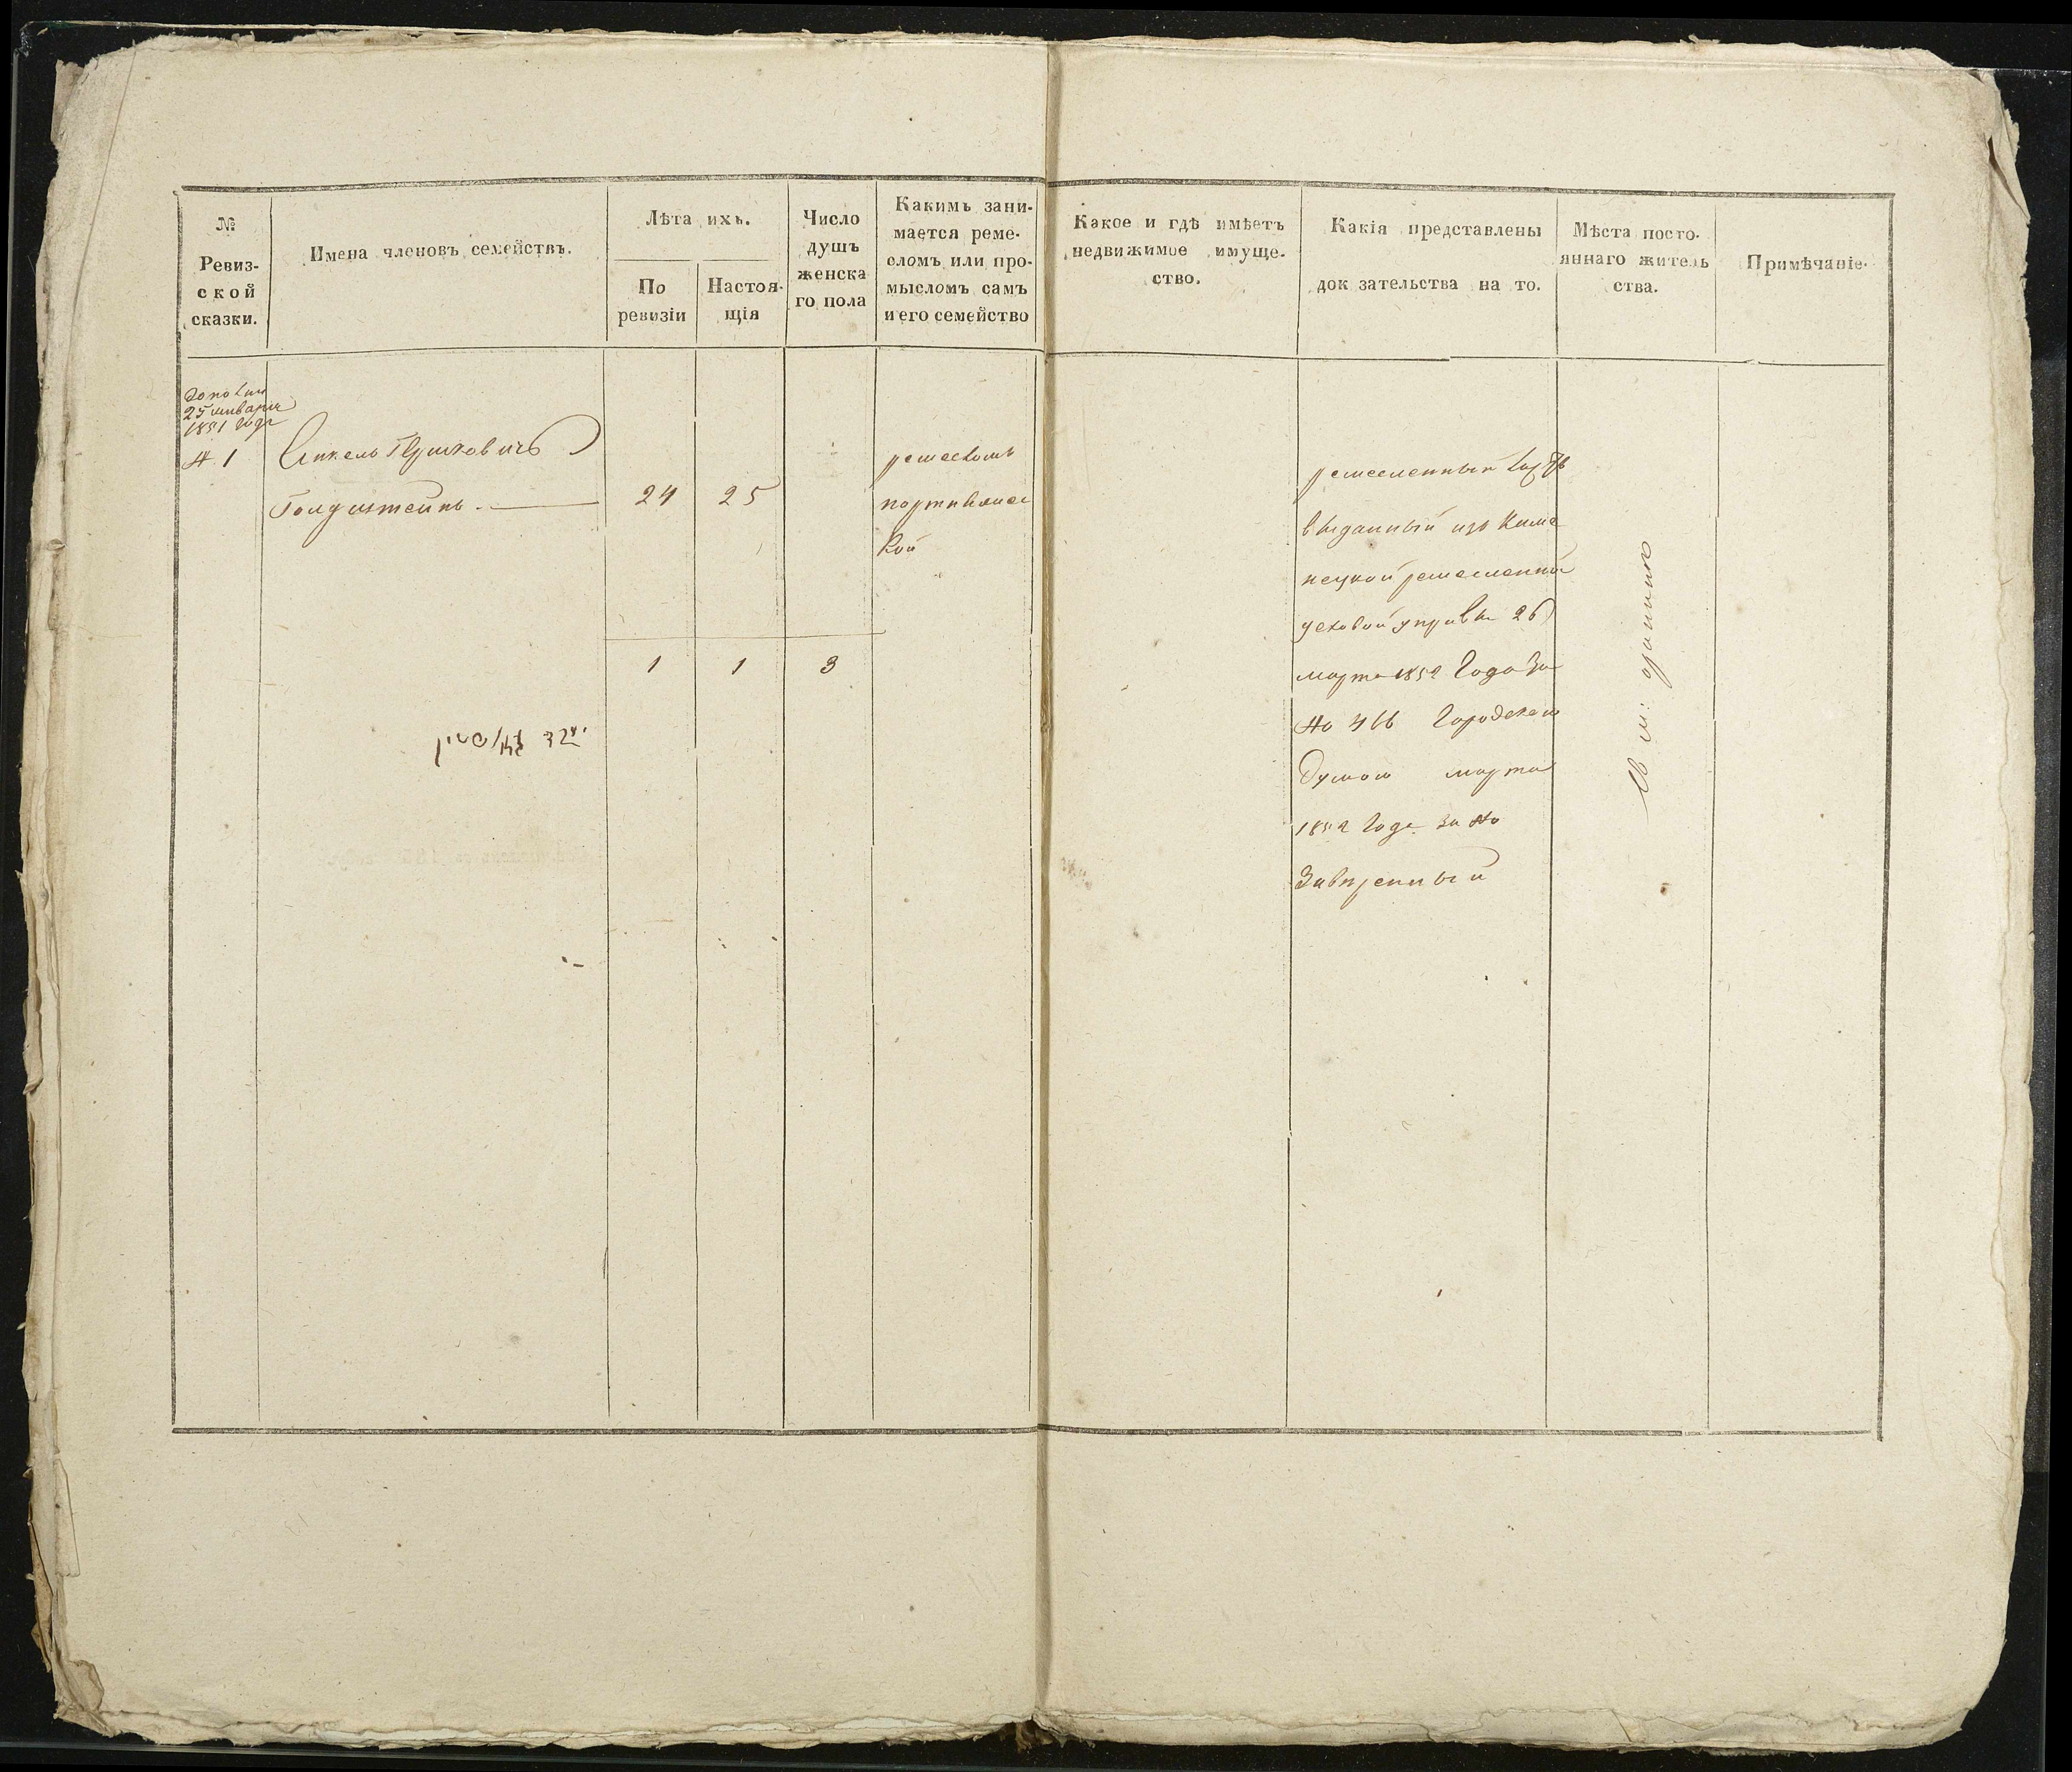 №
Ревиз-
ской
сказки.
Имена членовъ семействъ.
Лѣта ихъ.
По
ревизіи
Настоя-
щія
Число
душъ
женска
го пола
Какимъ зани-
мается реме-
сломъ или про-
мысломъ самъ
и его семейство
Какое и гдѣ имѣетъ
недвижимое имуще-
ство.
Какія представлены
док зательства на то.
Мѣста посто-
яннаго житель
ства.
Примѣчаніе.
25 января
1851 года
№ 1
Гершковичъ
Голдштейнъ
24
25
портняжес
кой
1
1
3
ремесленный
выданный изъ Каме
нецкой ремесленной
цеховой управы 26
марта 1852 Года За
№ 466 Городскою
Думою марта
1852 Года за №